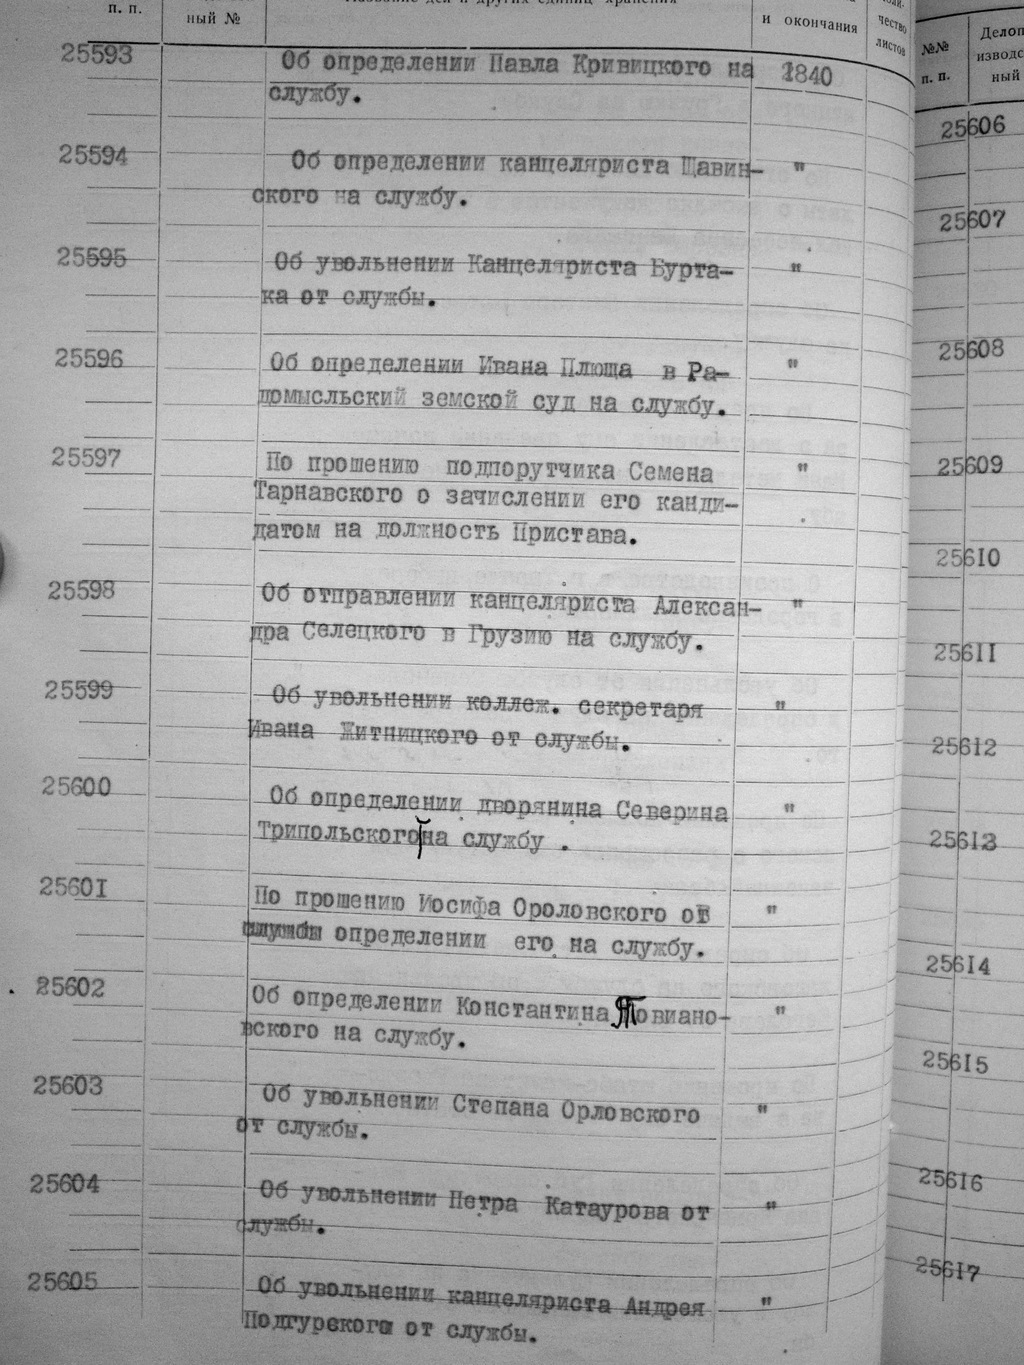 п. п.
ный №
и окончания
чество
листов
25593 Об определении Павла Кривицкого на 1840
службу.
25594 Об определении канцеляриста Щавин- "
ского на службу.
25595 Об увольнении Канцеляриста Бурта- "
ка от службы.
25596 Об определении Ивана Плюща в Ра- "
домысльский земской суд на службу.
25597 По прошению подпорутчика Семена "
Тарнавского о зачислении его канди-
датом на должность Пристава.
25598 Об отправлении канцеляриста Алексан- "
дра Селецкого в Грузию на службу.
25599 Об увольнении коллеж. секретаря "
Ивана Житницкого от службы.
25600 Об определении дворянина Северина "
Трипольского на службу .
25601 По прошению Иосифа Ороловского об "
определении его на службу.
25602 Об определении Константина Товиано- "
вского на службу.
25603 Об увольнении Степана Орловского "
от службы.
25604 Об увольнении Петра Катаурова от "
службы.
25605 Об увольнении канцеляриста Андрея "
Подгурского от службы.
№№
п. п.
Делоп
изводс
ный
25606
25607
25608
25609
25610
25611
25612
25613
25614
25615
25616
25617